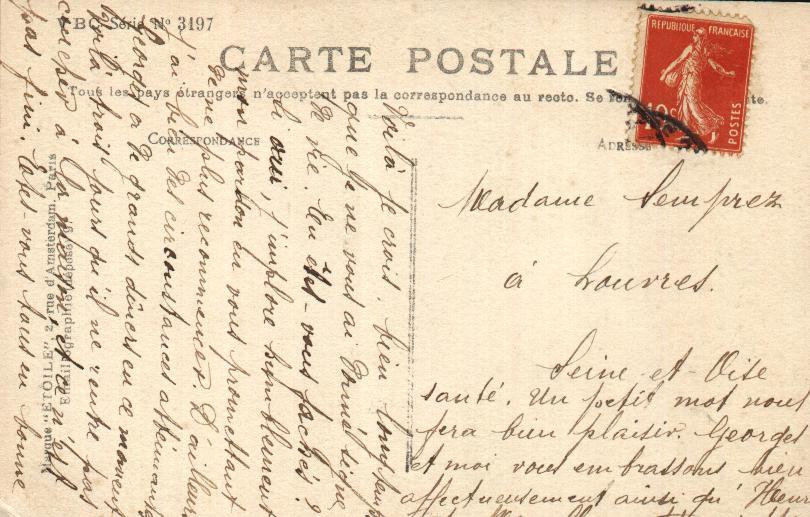 VBC Série Nº 3197
CARTE POSTALE
Tous les pays étrangers n'acceptent pas la correspondance au recto. Se ren te.
CORRESPONDANCE
ADRESSE
RÉPUBLIQUE FRANÇAISE
POSTES
10
Marque "ETOILE", 2, rue d'Amsterdam, Paris
Emaillographie (déposé)
Voilà je crois, bien longtemps
que je ne vous ai donné signe
de vie. En êtes-vous fâchés?
Si oui, j'implore humblement
mon pardon en vous promettant
de ne plus recommencer. D'ailleurs
j'ai bien des circonstances atténuantes
Georges a de grands dîners en ce moment
Voilà trois jours qu'il ne rentre pas
coucher à la maison, et ça n'est
pas fini. Etes-vous tous en bonne
santé. Un petit mot nous
fera bien plaisir. Georges
et moi vous embrassons bien
affectueusement ainsi qu'
Madame Semprez
à Louvres.
Seine et Oise